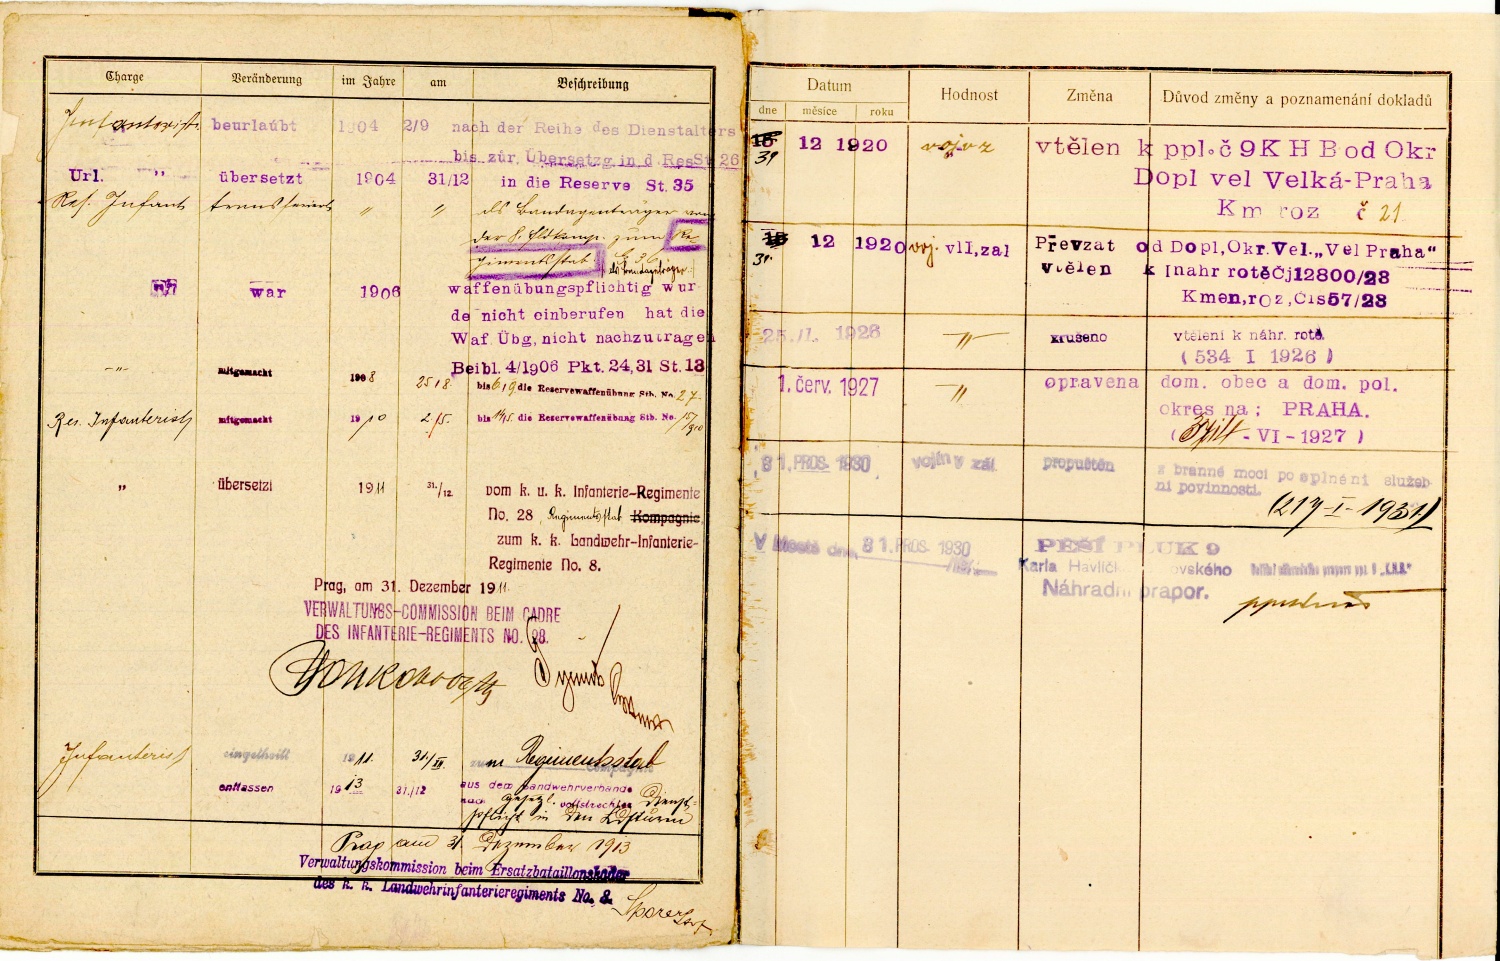 Charge Veränderung im Jahre am Beschreibung
Infanterist beurlaubt 1904 2/9 nach der Reihe des Dienstalters
bis zur Übersetzg in d ResSt 26
Url. " übersetzt 1904 31/12 in die Reserve St. 35
Res. Infant transferiert " " als Bandagenträger von
der 8. Fldkomp. zum Re
gimentsstab
als Bandagenträger
war 1906 waffenübungspflichtig wur
de nicht einberufen hat die
Waf. Übg, nicht nachzutragen
Beibl. 4/1906 Pkt. 24, 31 St. 13
-"- mitgemacht 1908 25/8 bis 6/9 die Reservewaffenübung Stb. No. 27
Res. Infanterist mitgemacht 1910 2/5. bis 14/5. die Reservewaffenübung Stb. No. 157/910
" übersetzt 1911 31./12 vom k. u. k. Infanterie-Regimente
No. 28, Regimentsstab Kompagnie,
zum k. k. Landwehr-Infanterie-
Regimente No. 8.
Prag, am 31. Dezember 1911.
VERWALTUNGS-COMMISSION BEIM CADRE
DES INFANTERIE-REGIMENTS NO. 28.
Infanterist eingetheilt 1911. 31./XII. zum Regimentsstab compagnie
entlassen 1913 31./12 aus dem Landwehrverbande
nach gesetzl. vollstreckter Dienst-
pflicht in den Ldsturm
Prag am 31. Dezember 1913
Verwaltungskommission beim Ersatzbataillonskader
des k. k. Landwehrinfanterieregiments No. 8.
Datum Hodnost Změna Důvod změny a poznamenání dokladů
dne měsíce roku
31 12 1920 vojín vtělen k ppl. č 9 K H B od Okr
Dopl vel Velká-Praha
Km roz č 21
31. 12 1920 voj. v II, zal Převzat od Dopl, Okr. Vel. „Vel Praha“
vtělen k Inahr rotě Čj 12800/23
Kmen, roz, Čís 57/23
25. II. 1926 -"- zrušeno vtělení k náhr. rotě.
( 534 I 1926 )
1. červ. 1927 -"- opravena dom. obec a dom. pol.
okres na ; PRAHA.
( - VI - 1927 )
31. PROS. 1930 vojín v zál. propuštěn z branné moci po splnění služeb-
ní povinnosti.
(217-I-1931)
V Mostě dne 31. PROS. 1930 PĚŠÍ PLUK 9
Karla Havlíčka Borovského
Náhradní prapor.